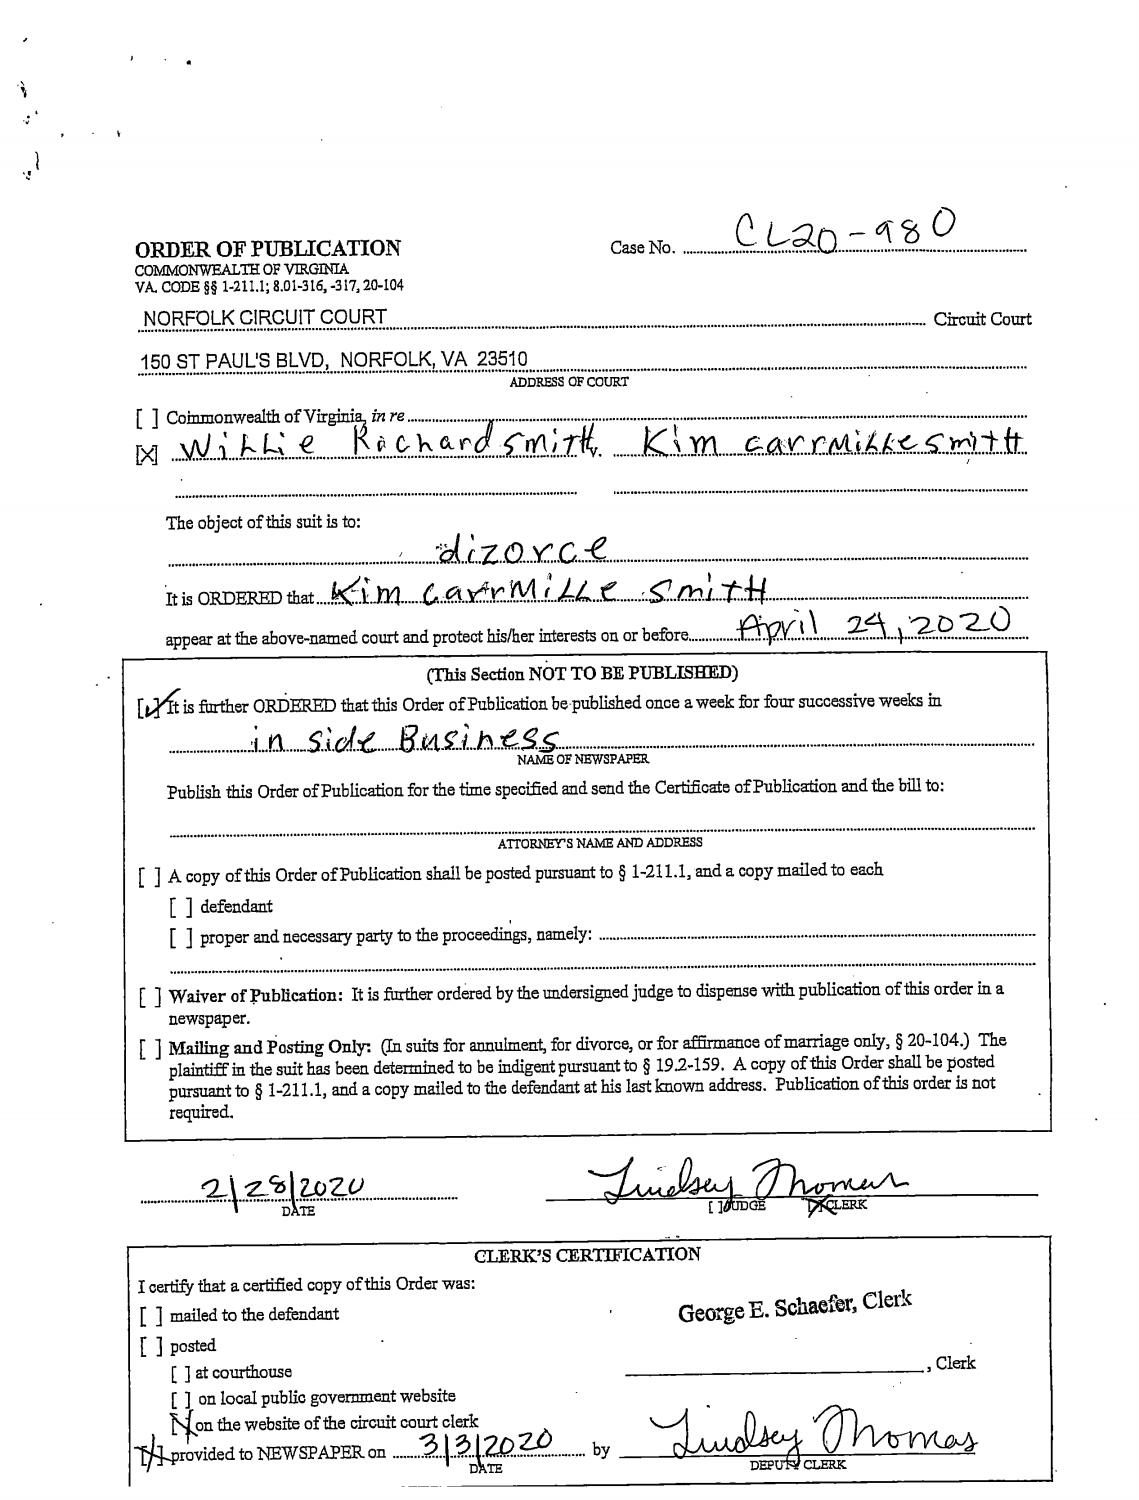 Case No. CL20-980
ORDER OF PUBLICATION
COMMONWEALTH OF VIRGINIA
VA. CODE §§ 1-211.1; 8.01-316, -317, 20-104
NORFOLK CIRCUIT COURT Circuit Court
150 ST PAUL'S BLVD, NORFOLK, VA 23510
ADDRESS OF COURT
[ ] Commonwealth of Virginia, in re
[X] WiLLie Richard smith, Kim carrMiLLe smith
The object of this suit is to:
dizorce
It is ORDERED that Kim CarrMiLLe smith
appear at the above-named court and protect his/her interests on or before April 24, 2020
(This Section NOT TO BE PUBLISHED)
[✓] It is further ORDERED that this Order of Publication be published once a week for four successive weeks in
in side Business
NAME OF NEWSPAPER
Publish this Order of Publication for the time specified and send the Certificate of Publication and the bill to:
ATTORNEY'S NAME AND ADDRESS
[ ] A copy of this Order of Publication shall be posted pursuant to § 1-211.1, and a copy mailed to each
[ ] defendant
[ ] proper and necessary party to the proceedings, namely:
[ ] Waiver of Publication: It is further ordered by the undersigned judge to dispense with publication of this order in a
newspaper.
[ ] Mailing and Posting Only: (In suits for annulment, for divorce, or for affirmance of marriage only, § 20-104.) The
plaintiff in the suit has been determined to be indigent pursuant to § 19.2-159. A copy of this Order shall be posted
pursuant to § 1-211.1, and a copy mailed to the defendant at his last known address. Publication of this order is not
required.
2/28/2020 Lindsey Thomas
DATE [ ] JUDGE [X] CLERK
CLERK'S CERTIFICATION
I certify that a certified copy of this Order was:
[ ] mailed to the defendant
George E. Schaefer, Clerk
[ ] posted
[ ] at courthouse
, Clerk
[ ] on local public government website
[X] on the website of the circuit court clerk
[X] provided to NEWSPAPER on 3/3/2020 by Lindsey Thomas
DATE DEPUTY CLERK